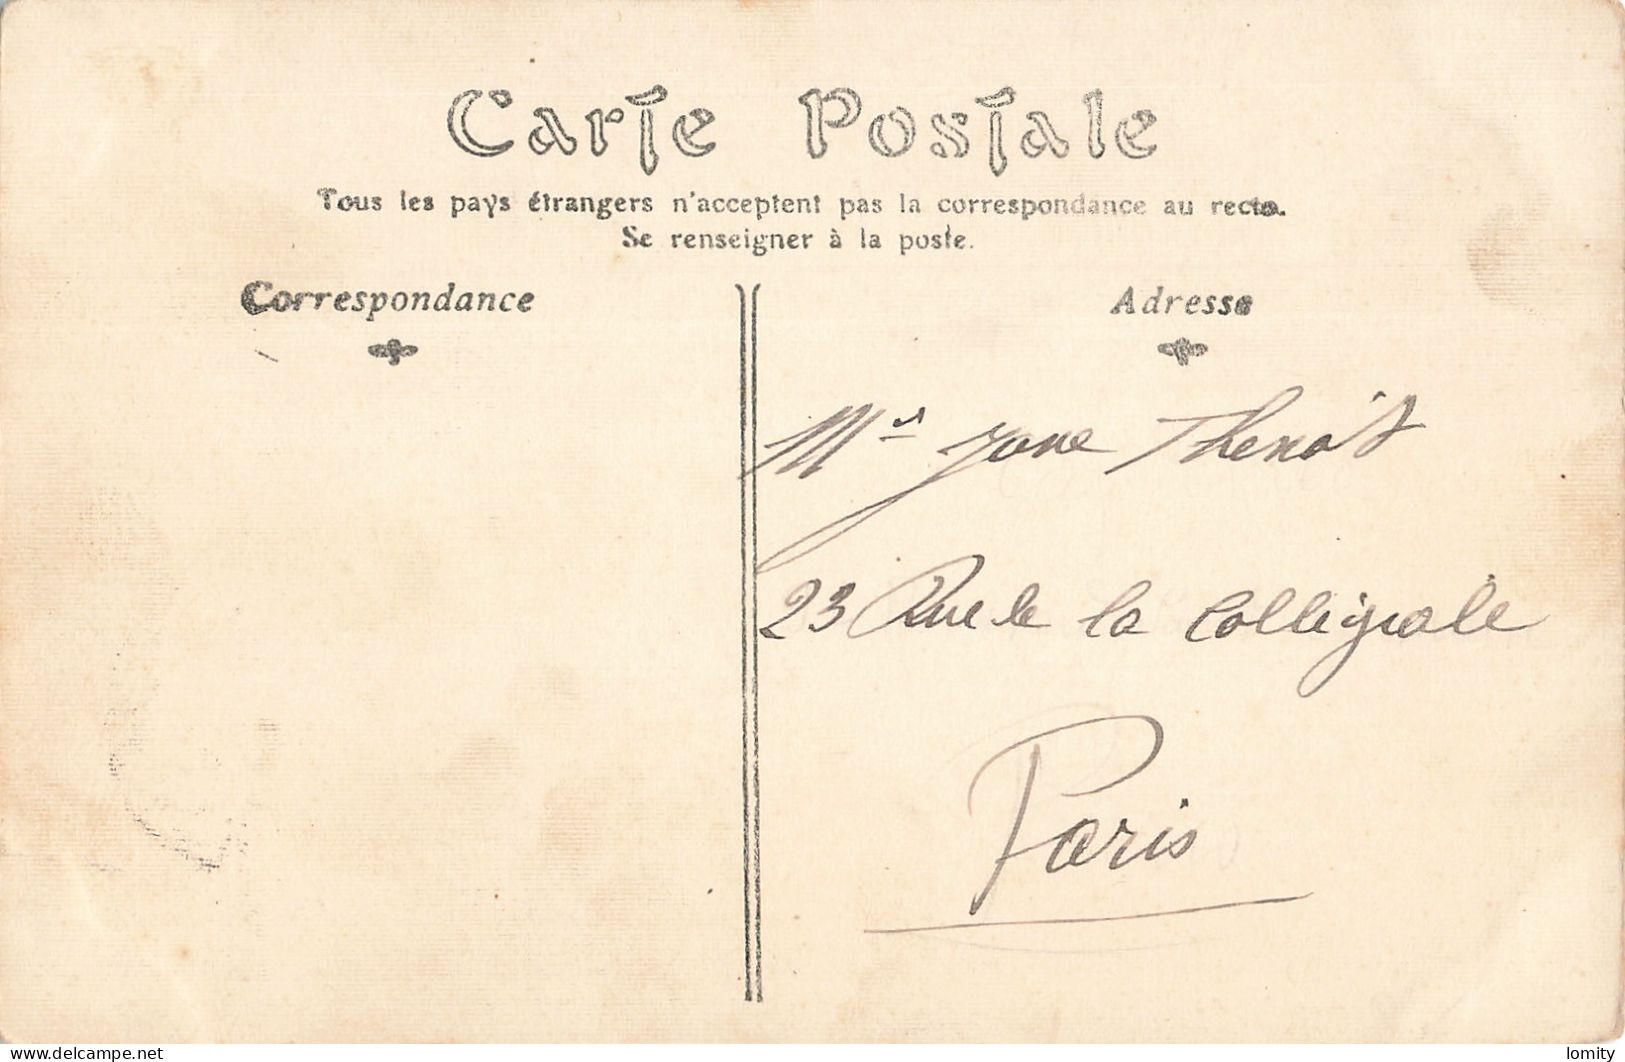 Carte Postale
Tous les pays étrangers n'acceptent pas la correspondance au recto.
Se renseigner à la poste.
Correspondance
Adresse
Mr Thenot
23 Rue de la Collégiale
Paris
delcampe.net
lomity